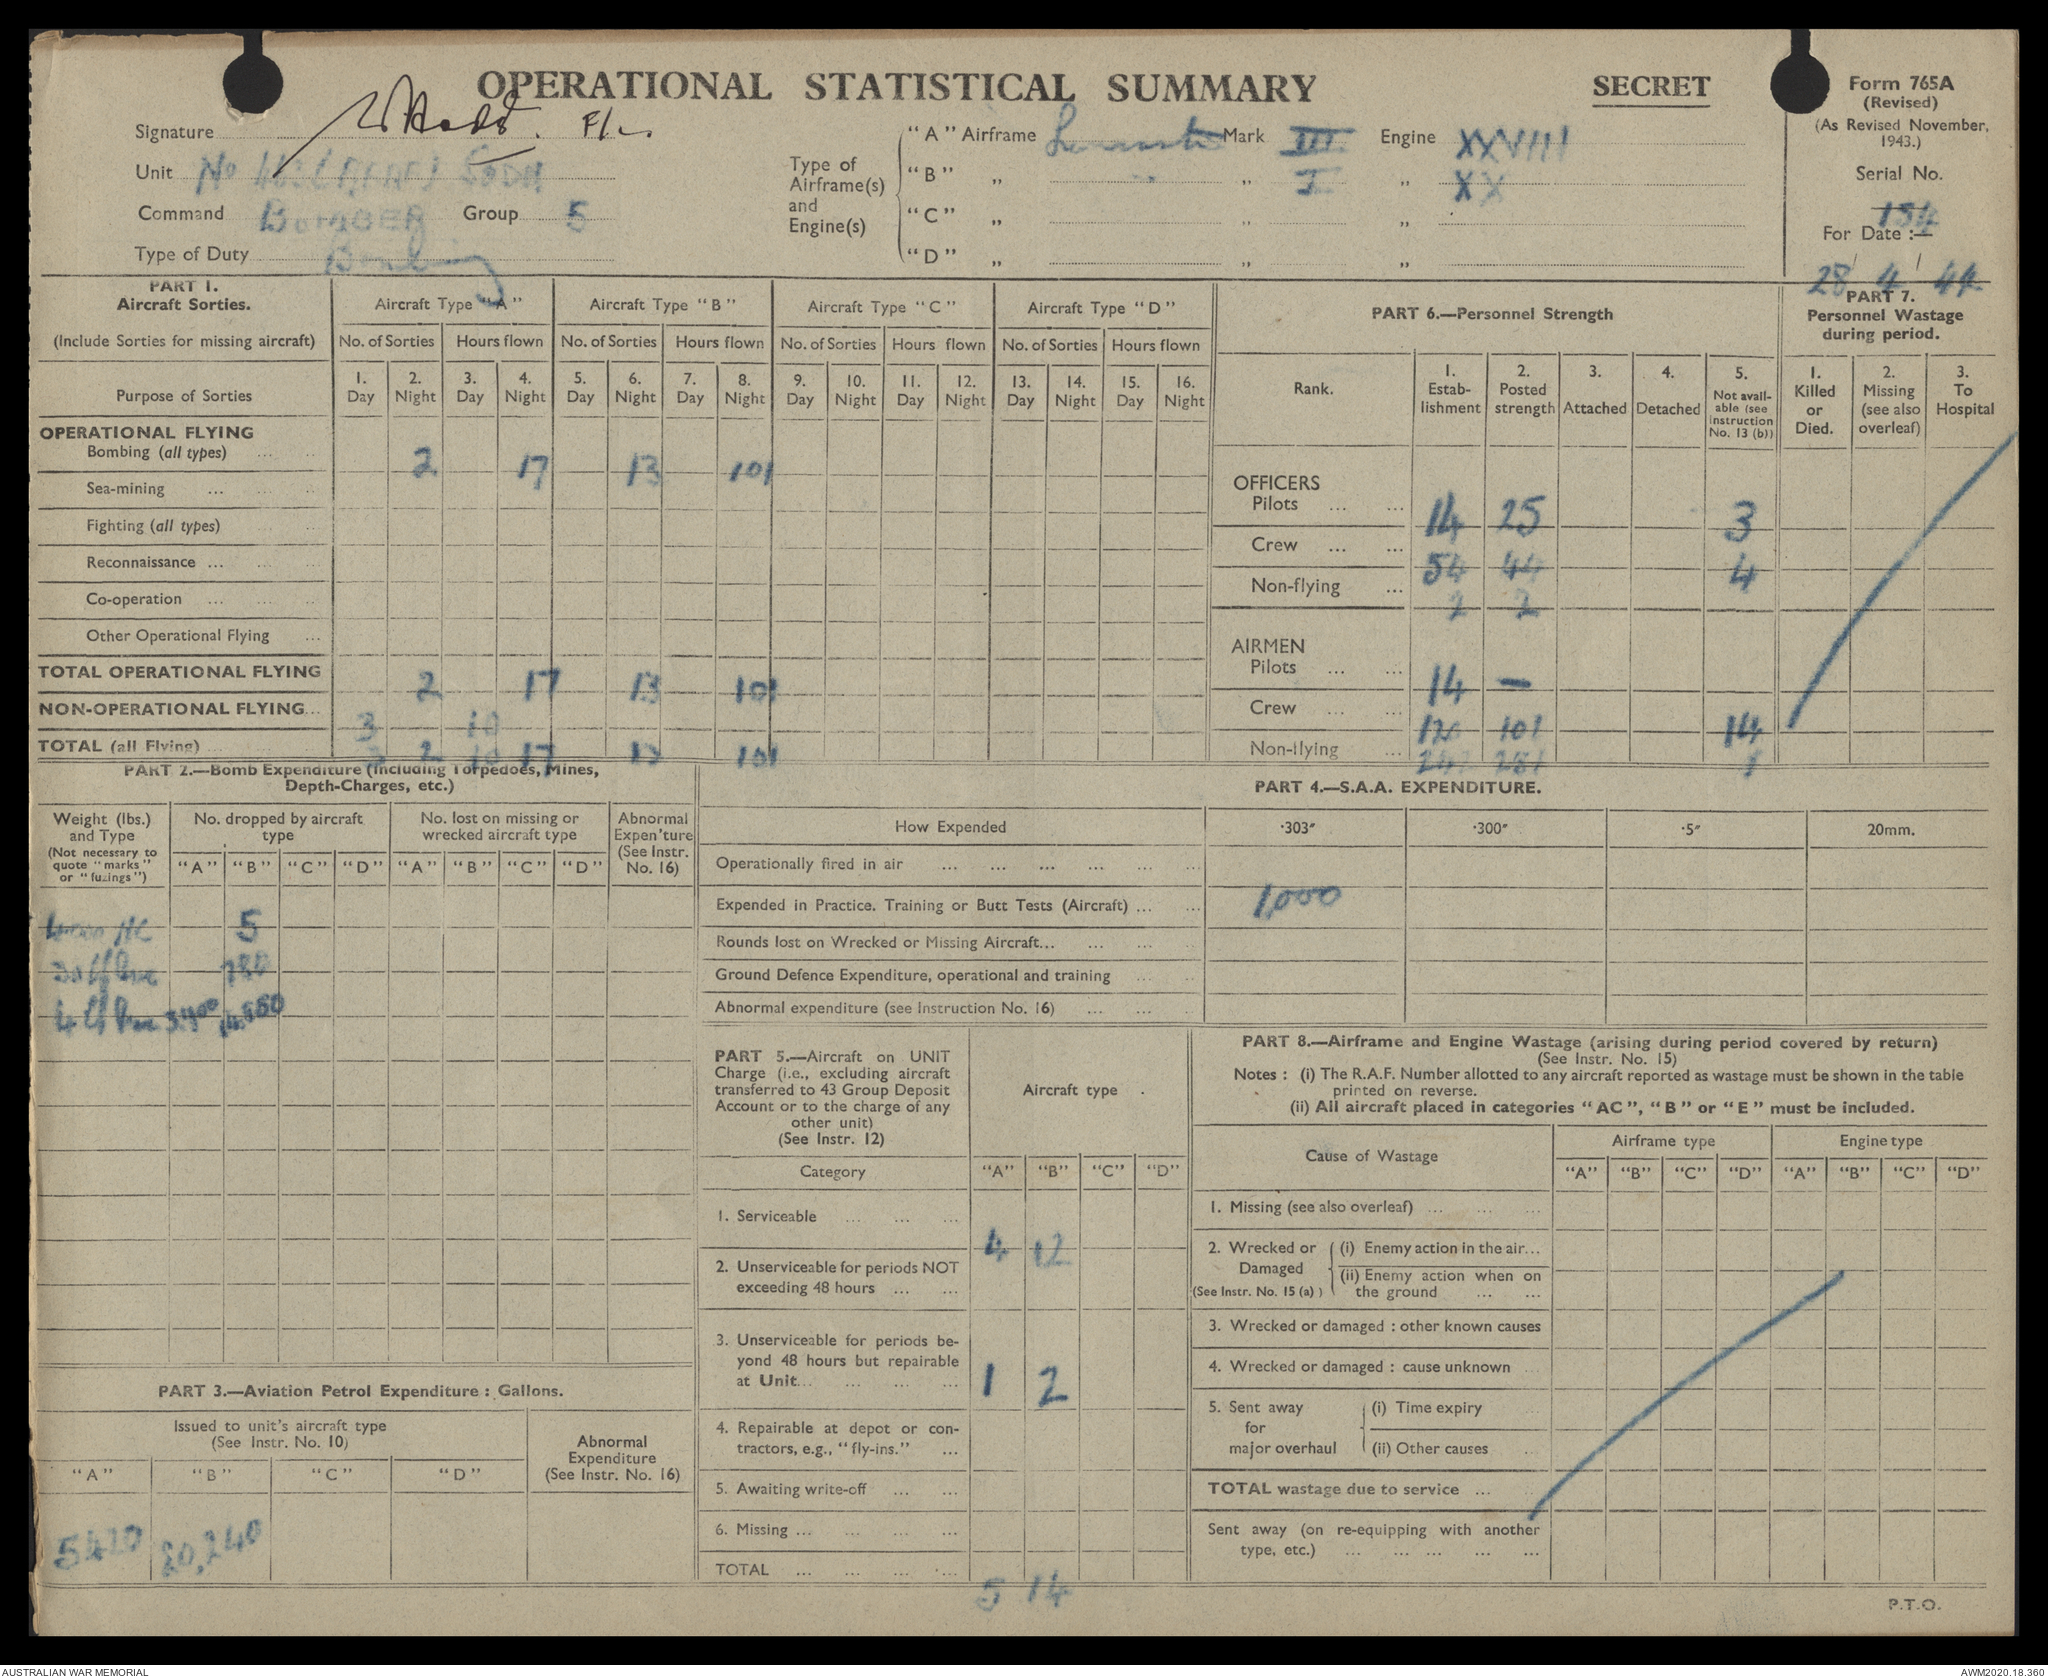 OPERATIONAL STATISTICAL SUMMARY
SECRET
Form 765A
(Revised)
(As Revised November,
1943.)
Signature F/L
Unit No 463 (RAAF) SQDN
Command BOMBER Group 5
Type of Duty Bombing
Type of
Airframe(s)
and
Engine(s)
"A" Airframe Lancaster Mark III Engine XXVIII
"B" „ „ „ I „ XX
"C" „ „ „
"D" „ „ „
Serial No.
184
For Date :—
28 / 4 / 44
PART 1.
Aircraft Sorties.
(Include Sorties for missing aircraft)
Purpose of Sorties
Aircraft Type "A" Aircraft Type "B" Aircraft Type "C" Aircraft Type "D"
No. of Sorties Hours flown No. of Sorties Hours flown No. of Sorties Hours flown No. of Sorties Hours flown
1. Day 2. Night 3. Day 4. Night 5. Day 6. Night 7. Day 8. Night 9. Day 10. Night 11. Day 12. Night 13. Day 14. Night 15. Day 16. Night
OPERATIONAL FLYING
Bombing (all types) ... 2 17 13 101
Sea-mining ...
Fighting (all types)
Reconnaissance ...
Co-operation ...
Other Operational Flying ...
TOTAL OPERATIONAL FLYING 2 17 13 101
NON-OPERATIONAL FLYING... 3 10
TOTAL (all Flying) ... 3 2 10 17 13 101
PART 6.—Personnel Strength
Rank.
1. Estab-lishment
2. Posted strength
3. Attached
4. Detached
5. Not avail-able (see instruction No. 13 (b))
OFFICERS
Pilots ... ... 14 25 3
Crew ... ... 54 44 4
Non-flying ... 2 2
AIRMEN
Pilots ... ... 14 —
Crew ... ... 120 101 14
Non-flying ... 281 1
PART 7.
Personnel Wastage
during period.
1. Killed or Died.
2. Missing (see also overleaf)
3. To Hospital
PART 2.—Bomb Expenditure (Including Torpedoes, Mines,
Depth-Charges, etc.)
Weight (lbs.)
and Type
(Not necessary to
quote "marks"
or "fuzings")
No. dropped by aircraft
type
No. lost on missing or
wrecked aircraft type
Abnormal
Expen'ture
(See Instr.
No. 16)
"A" "B" "C" "D" "A" "B" "C" "D"
4000 HC 5
30 lb Inc 780
4 lb Inc
PART 4.—S.A.A. EXPENDITURE.
How Expended ·303″ ·300″ ·5″ 20mm.
Operationally fired in air ... ... ... ... ... ...
Expended in Practice. Training or Butt Tests (Aircraft) ... ... 1,000
Rounds lost on Wrecked or Missing Aircraft... ... ... ..
Ground Defence Expenditure, operational and training ... ..
Abnormal expenditure (see Instruction No. 16) ... ... ..
PART 5.—Aircraft on UNIT
Charge (i.e., excluding aircraft
transferred to 43 Group Deposit
Account or to the charge of any
other unit)
(See Instr. 12)
Aircraft type
Category "A" "B" "C" "D"
1. Serviceable ... ... ... 4 12
2. Unserviceable for periods NOT
exceeding 48 hours ... ...
3. Unserviceable for periods be-
yond 48 hours but repairable
at Unit... ... ... ... 1 2
4. Repairable at depot or con-
tractors, e.g., "fly-ins." ...
5. Awaiting write-off ... ...
6. Missing ... ... ... ...
TOTAL ... ... ... ... 5 14
PART 8.—Airframe and Engine Wastage (arising during period covered by return)
(See Instr. No. 15)
Notes : (i) The R.A.F. Number allotted to any aircraft reported as wastage must be shown in the table
printed on reverse.
(ii) All aircraft placed in categories "AC", "B" or "E" must be included.
Cause of Wastage
Airframe type Engine type
"A" "B" "C" "D" "A" "B" "C" "D"
1. Missing (see also overleaf) ... ... ...
2. Wrecked or Damaged (See Instr. No. 15 (a) )
(i) Enemy action in the air...
(ii) Enemy action when on
the ground ... ...
3. Wrecked or damaged : other known causes
4. Wrecked or damaged : cause unknown
5. Sent away
for
major overhaul
(i) Time expiry
(ii) Other causes
TOTAL wastage due to service ...
Sent away (on re-equipping with another
type, etc.) ... ... ... ... ...
PART 3.—Aviation Petrol Expenditure : Gallons.
Issued to unit's aircraft type
(See Instr. No. 10)
Abnormal
Expenditure
(See Instr. No. 16)
"A" "B" "C" "D"
P.T.O.
AUSTRALIAN WAR MEMORIAL
AWM2020.18.360